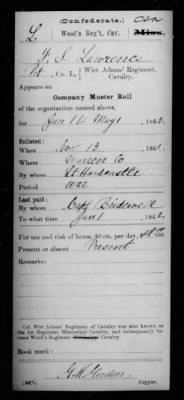 (Confederate.)
L Wood's Reg't, Cav. Miss. CSA
J. S. Lawrence
Pvt, Co. L, Wirt Adams' Regiment, Cavalry.
Appears on
Company Muster Roll
of the organization named above,
for Jan 1 to May 1, 1862.
Enlisted:
When Nov 13, 1861.
Where Warren Co
By whom Lt Hardcastle
Period War
Last paid:
By whom Capt Bridewell
To what time Jan 1, 1862.
For use and risk of horse, 40 cts. per day, $48 00/100
Present or absent Present
Remarks:
Col. Wirt Adams' Regiment of Cavalry was also known as
the 1st Regiment Mississippi Cavalry, and subsequently be-
came Wood's Regiment Mississippi Cavalry.
Book mark:
G. M. Gordon
(642) Copyist.